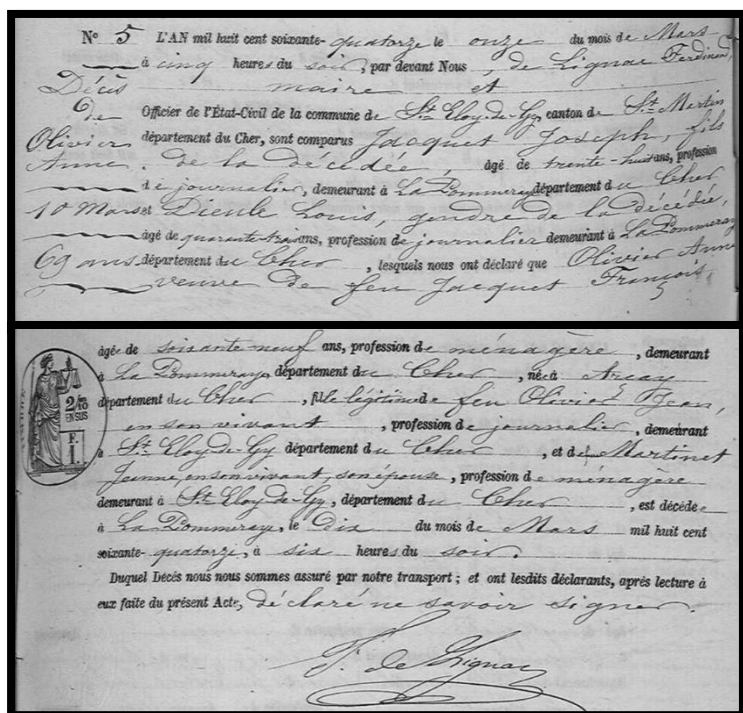 N° 5 L'AN mil huit cent soixante-quatorze le onze du mois de Mars
à cinq heures du soir, par devant Nous, de Lignac Ferdinand,
Décès maire et
de Officier de l'État-Civil de la commune de St. Eloy-de-Gy, canton de St. Martin
Olivier département du Cher, sont comparus Jacquet Joseph, fils
Anne. de la décédée, âgé de trente-huit ans, profession
de journalier, demeurant à La Pommeraye département du Cher
10 Mars et Dieule Louis, gendre de la décédée,
âgé de quarante-trois ans, profession de journalier demeurant à La Pommeraye
69 ans département du Cher, lesquels nous ont déclaré que Olivier Anne
veuve de feu Jacquet François,
âgée de soixante neuf ans, profession de ménagère, demeurant
à La Pommeraye département du Cher, née à Arcay
département du Cher, fille légitime de feu Olivier Jean,
en son vivant, profession de journalier, demeurant
à St. Eloy-de-Gy département du Cher, et de Martinet
Jeanne, en son vivant, son épouse, profession de ménagère
demeurant à St. Eloy-de-Gy, département du Cher, est décédée
à La Pommeraye, le dix du mois de Mars mil huit cent
soixante-quatorze, à six heures du soir.
Duquel Décès nous nous sommes assuré par notre transport ; et ont lesdits déclarants, après lecture à
eux faite du présent Acte, déclaré ne savoir signer.
F. de Lignac
2/10
EN SUS
F.
1.